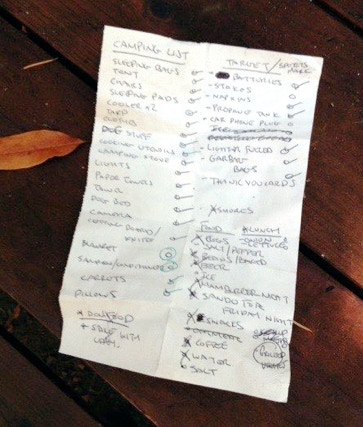 CAMPING LIST
SLEEPING BAGS
TENT
CHAIRS
SLEEPING PADS
COOLER X2
TARP
CLOTHES
DOG STUFF
COOKING UTENSILS
CAMPING STOVE
LIGHTS
PAPER TOWELS
TOWEL
DOG BED
CAMERA
CUTTING BOARD/
KNIFE
BLANKET
CARROTS
PILLOWS
* DOG FOOD
TARGET /
BATTERIES
- STAKES
- NAPKINS
- PROPANE TANK
- CAR PHONE PLUG
- LIGHTER FLUID
- GARBAGE
BAGS
- THANK YOU CARDS
* SMORES
FOOD
LETTUCE
SALT/PEPPER
BEANS/
BEER
ICE
HAMBURGER MEAT
FRIDAY NIGHT
SNACKS
COFFEE
WATER
SALT